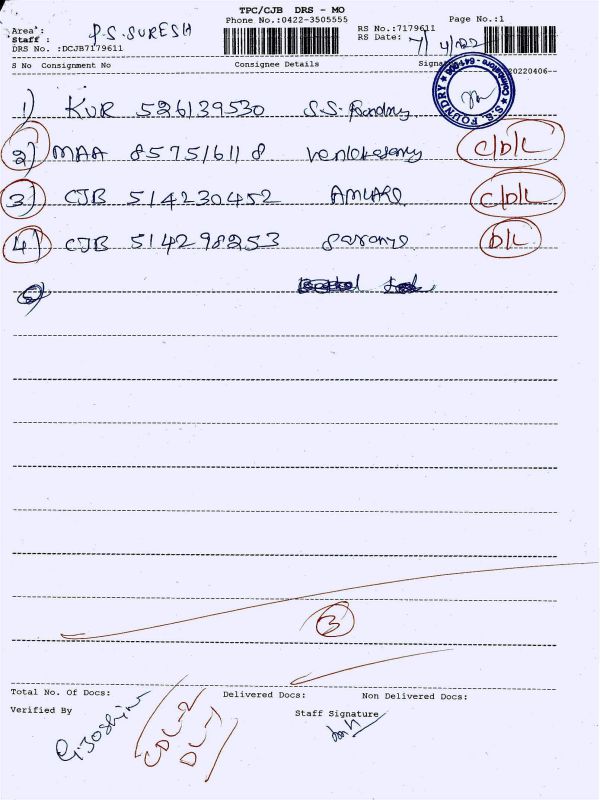 TPC/CJB DRS - MO
Phone No.:0422-3505555
Page No.:1
Area :
Staff : P.S. SURESH
DRS No. :DCJB7179611
RS No.:7179611
RS Date: 7/4/22
S No Consignment No Consignee Details
20220406-
S.S. FOUNDRY
1) KUR 526139530 S.S. Foundry
2) MAA 857516118 c/D/L
3) CJB 514230452 c/D/L
4) CJB 514298253 D/L
5)
3
Total No. Of Docs: Delivered Docs: Non Delivered Docs:
Verified By Staff Signature
CDL-2
DL-1